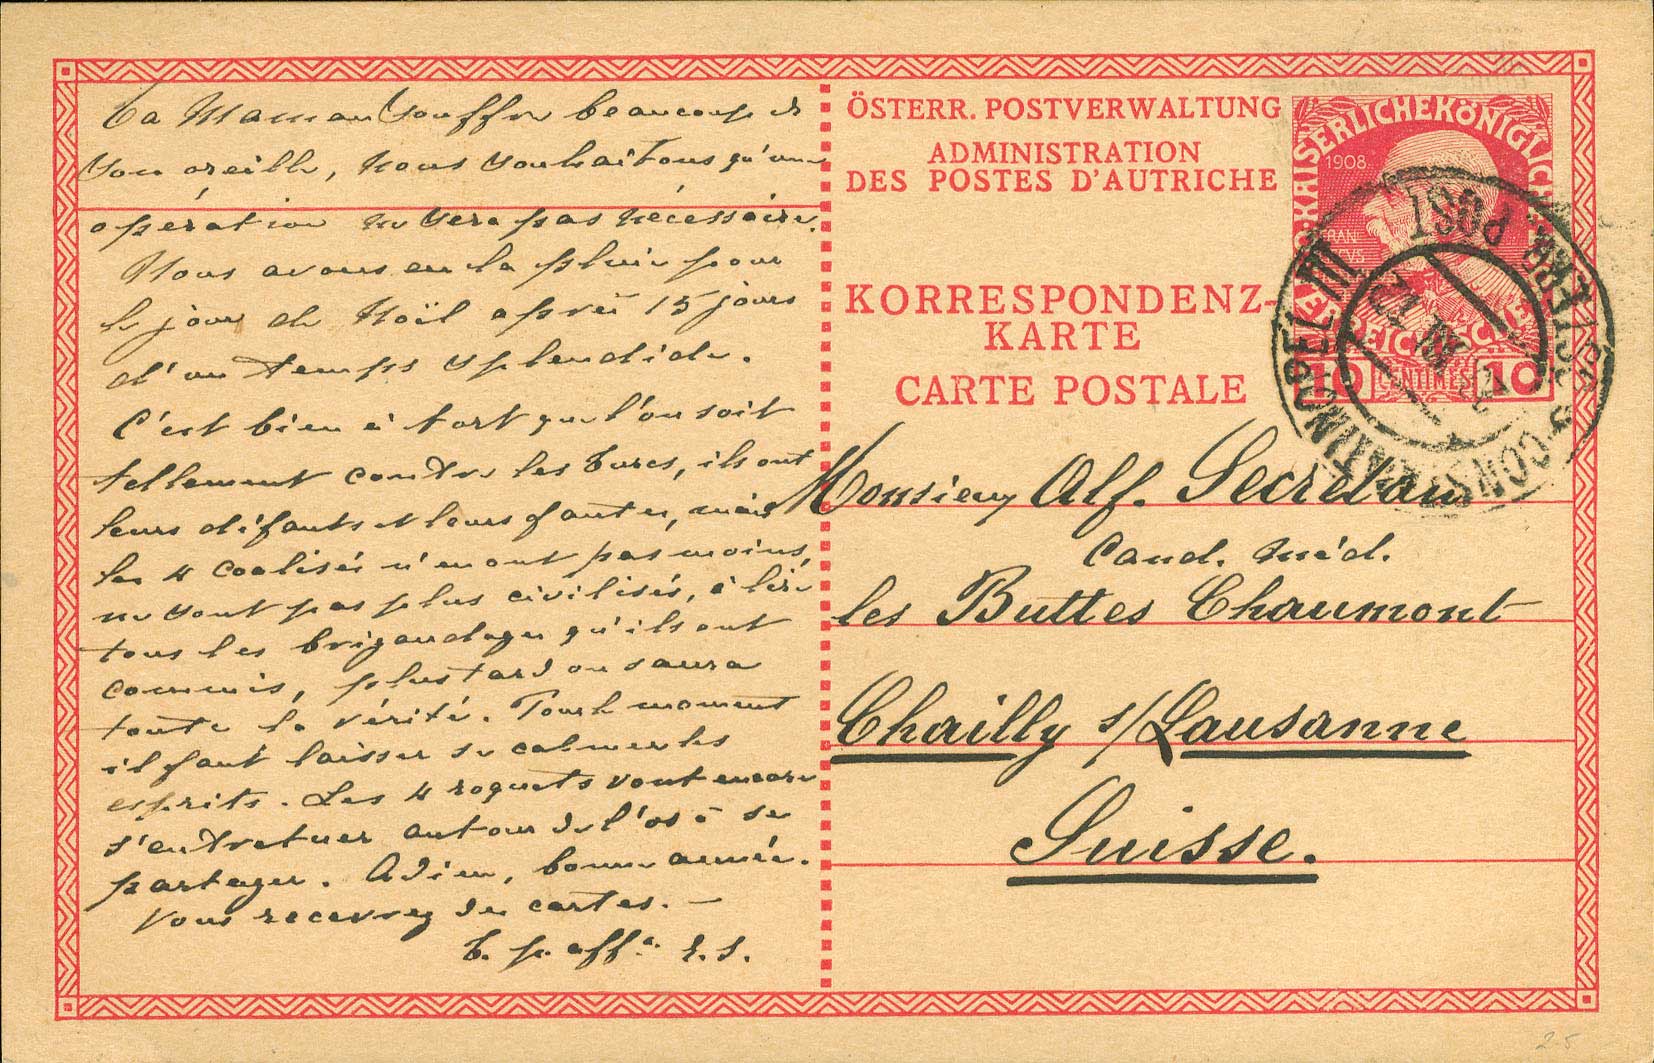 Ta Maman souffre beaucoup de
son oreille, nous souhaitons qu'une
opération ne sera pas nécessaire.
Nous avons eu la pluie pour
le jour de Noël après 15 jours
d'un temps splendide.
C'est bien à tort que l'on soit
tellement contre les Turcs, ils ont
leurs défauts et leurs fautes, mais
les 4 coalisés n'en ont pas moins,
ne sont pas plus civilisés, à lire
tous les brigandages qu'ils ont
commis, plus tard on saura
toute la vérité. Pour le moment
il faut laisser se calmer les
esprits. Les 4 roquets vont encore
s'entretuer autour de l'os à se
partager. Adieu, bonne année.
Vous recevrez des cartes. —
T. p. aff. E. S.
ÖSTERR. POSTVERWALTUNG
ADMINISTRATION
DES POSTES D'AUTRICHE
KORRESPONDENZ-
KARTE
CARTE POSTALE
KAISERLICHEKÖNIGLICHE
1908
FRAN
ÖSTERREICHISCHE
10 CENTIMES 10
ÖSTERR. POST
CONSTANTINOPEL III
XII 12
Monsieur Alf. Secretan
Cand. méd.
les Buttes Chaumont
Chailly s/Lausanne
Suisse.
25